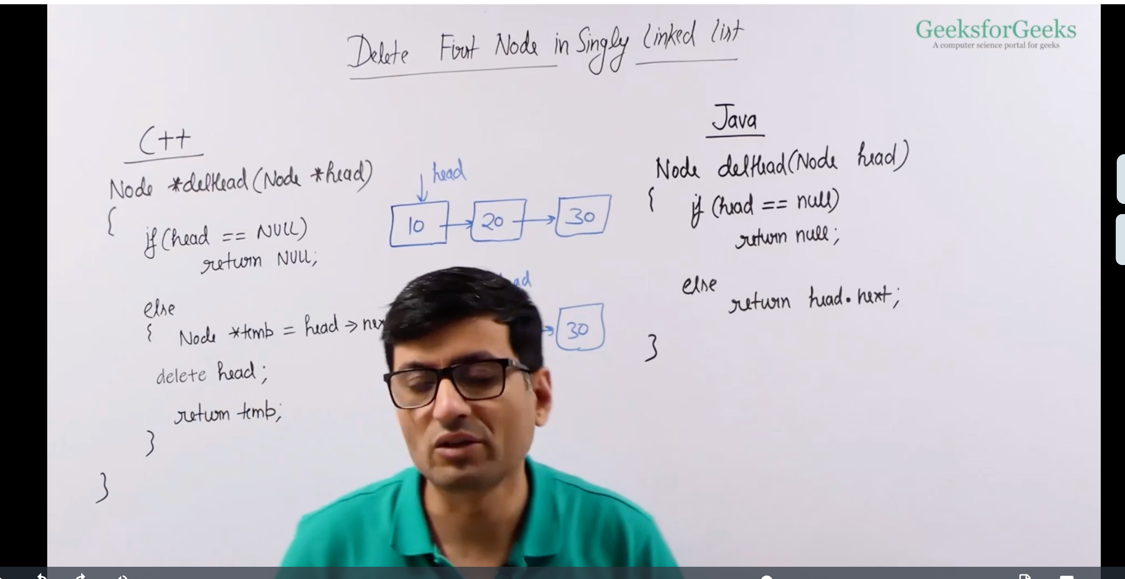 Delete First Node in Singly Linked List
GeeksforGeeks
A computer science portal for geeks
C++
Node *delHead(Node *head)
{
if(head == NULL)
return NULL;
else
{ Node *temp = head → 
delete head;
return temp;
}
}
head
10
20
30
30
Java
Node delHead(Node head)
{ if (head == null)
return null;
else
return head.next;
}